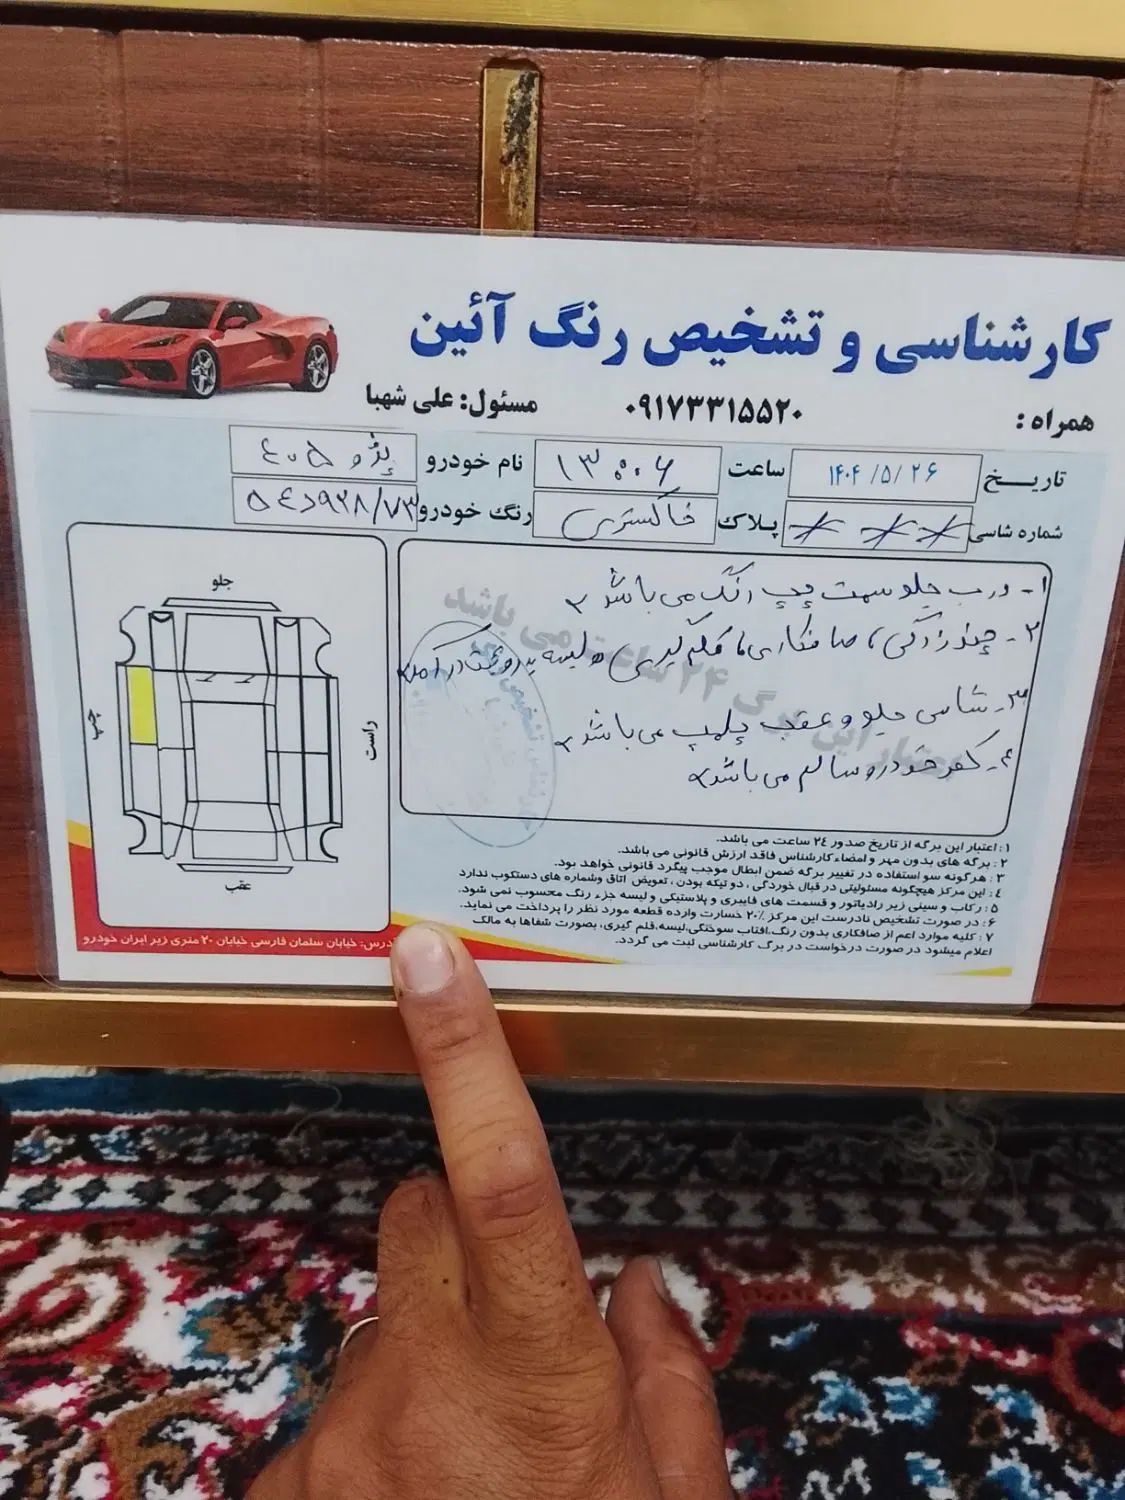 کارشناسی و تشخیص رنگ آئین
همراه: ۰۹۱۷۳۳۱۵۵۲۰ مسئول: علی شهبا
تاریخ ۱۴۰۴/۵/۲۶ ساعت ۱۳:۰۶ نام خودرو پژو ۴۰۵
شماره شاسی پلاک خاکستری رنگ خودرو ۵۴د۹۳۸/۷۳
جلو
چپ
راست
عقب
۱- درب جلو سمت چپ رنگ می باشد
۲- چند زدگی، صافکاری، قلم گیری و لیسه
۳- شاسی جلو و عقب پلمپ می باشد
۴- کف خودرو سالم می باشد
اعتبار این برگ ۲۴ ساعت می باشد
۱: اعتبار این برگه از تاریخ صدور ۲٤ ساعت می باشد.
۲: برگه های بدون مهر و امضاء کارشناس فاقد ارزش قانونی می باشد.
۳: هرگونه سو استفاده در تغییر برگه ضمن ابطال موجب پیگرد قانونی خواهد بود.
٤: این مرکز هیچگونه مسئولیتی در قبال خوردگی، دو تیکه بودن، تعویض اتاق وشماره های دستکوب ندارد
۵: رکاب و سینی زیر رادیاتور و قسمت های فایبری و پلاستیکی و لیسه جزء رنگ محسوب نمی شود.
۶: در صورت تشخیص نادرست این مرکز ۲۰٪ خسارت وارده قطعه مورد نظر را پرداخت می نماید.
۷: کلیه موارد اعم از صافکاری بدون رنگ، آفتاب سوختگی، لیسه، قلم گیری، بصورت شفاها به مالک
اعلام میشود در صورت درخواست در برگ کارشناسی ثبت می گردد.
آدرس: خیابان سلمان فارسی خیابان ۲۰ متری زیر ایران خودرو